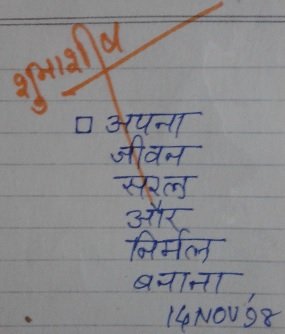 शुभाशीष
□ अपना
जीवन
सरल
और
निर्मल
बनाना,
14 NOV '98